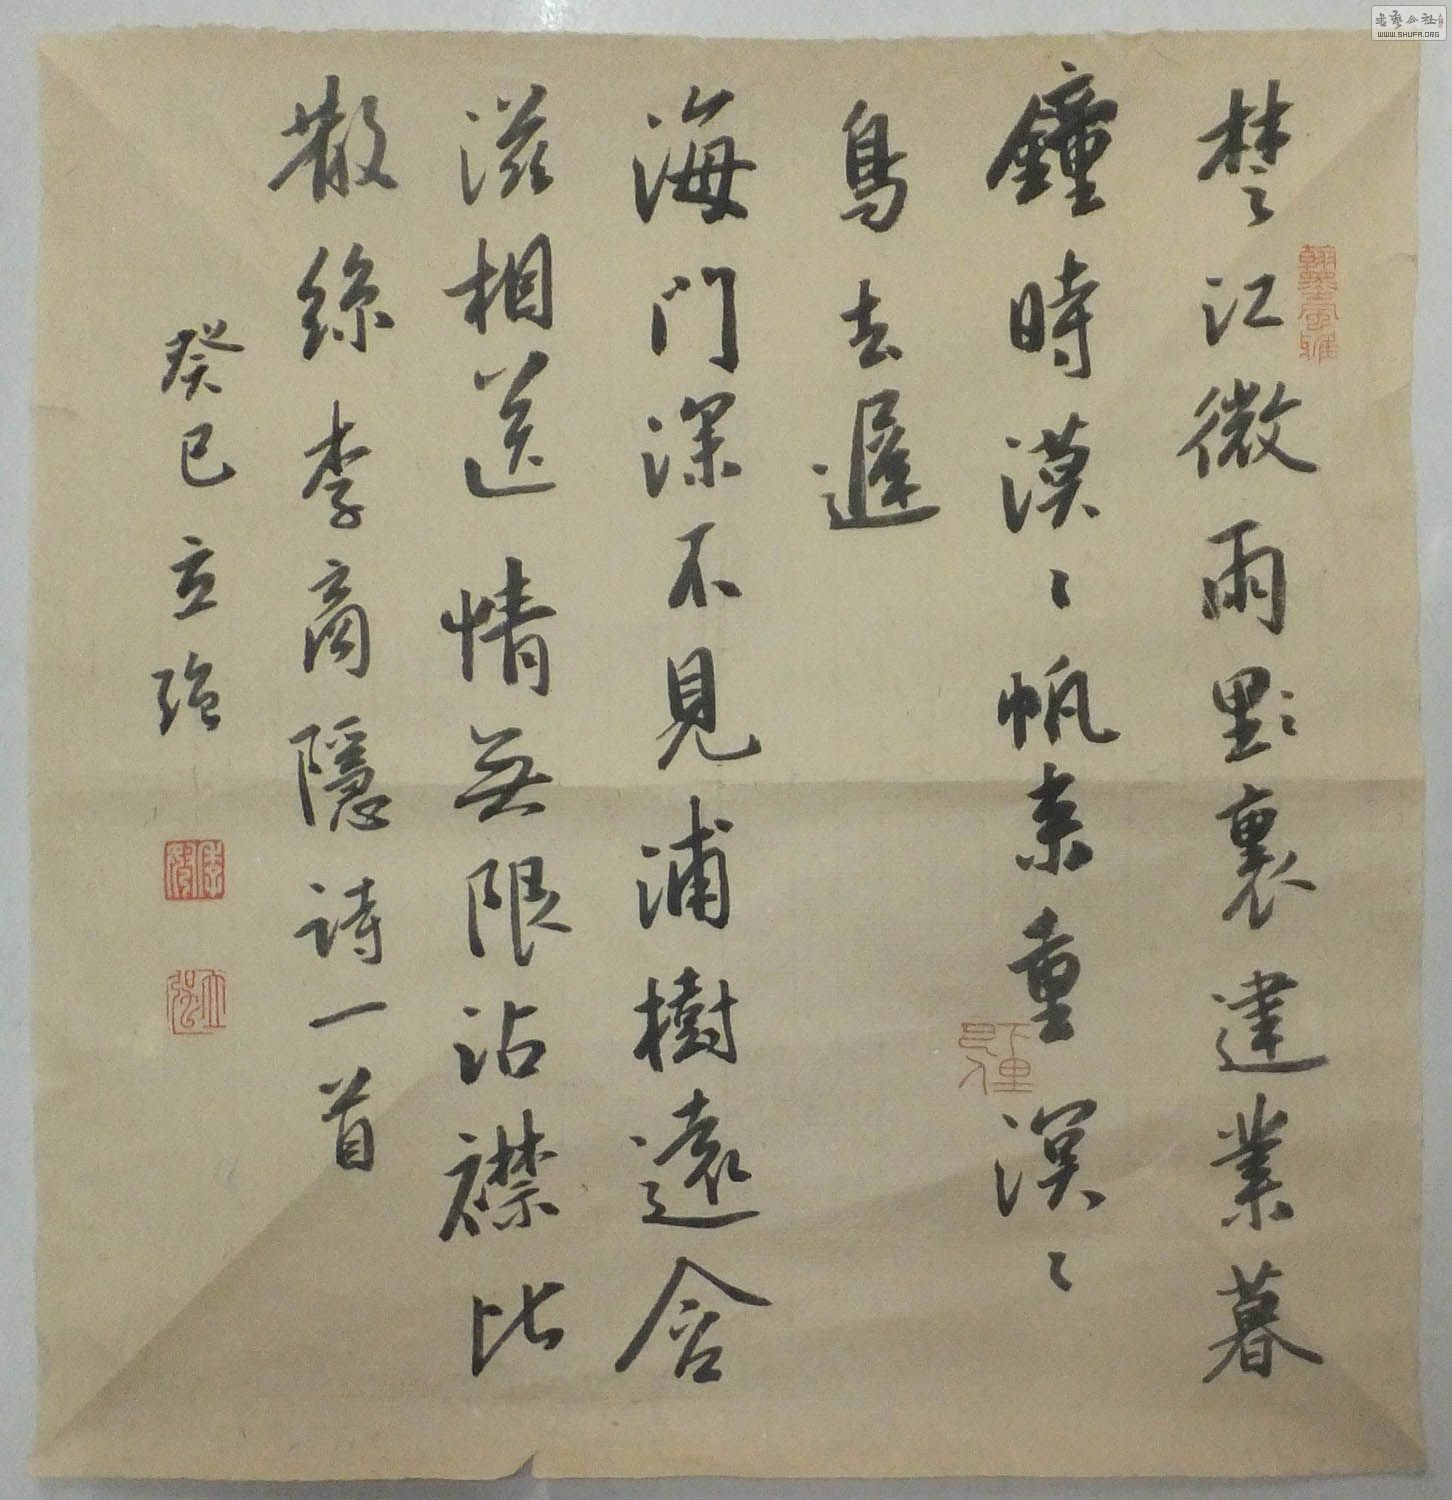 楚江微雨點〻裏建業暮
鐘時漠〻帆来重溟〻
鳥去遲
海门深不見浦樹遠含
滋相送情無限沾襟比
散絲李商隱詩一首
癸巳立強
WWW.SHUFA.ORG